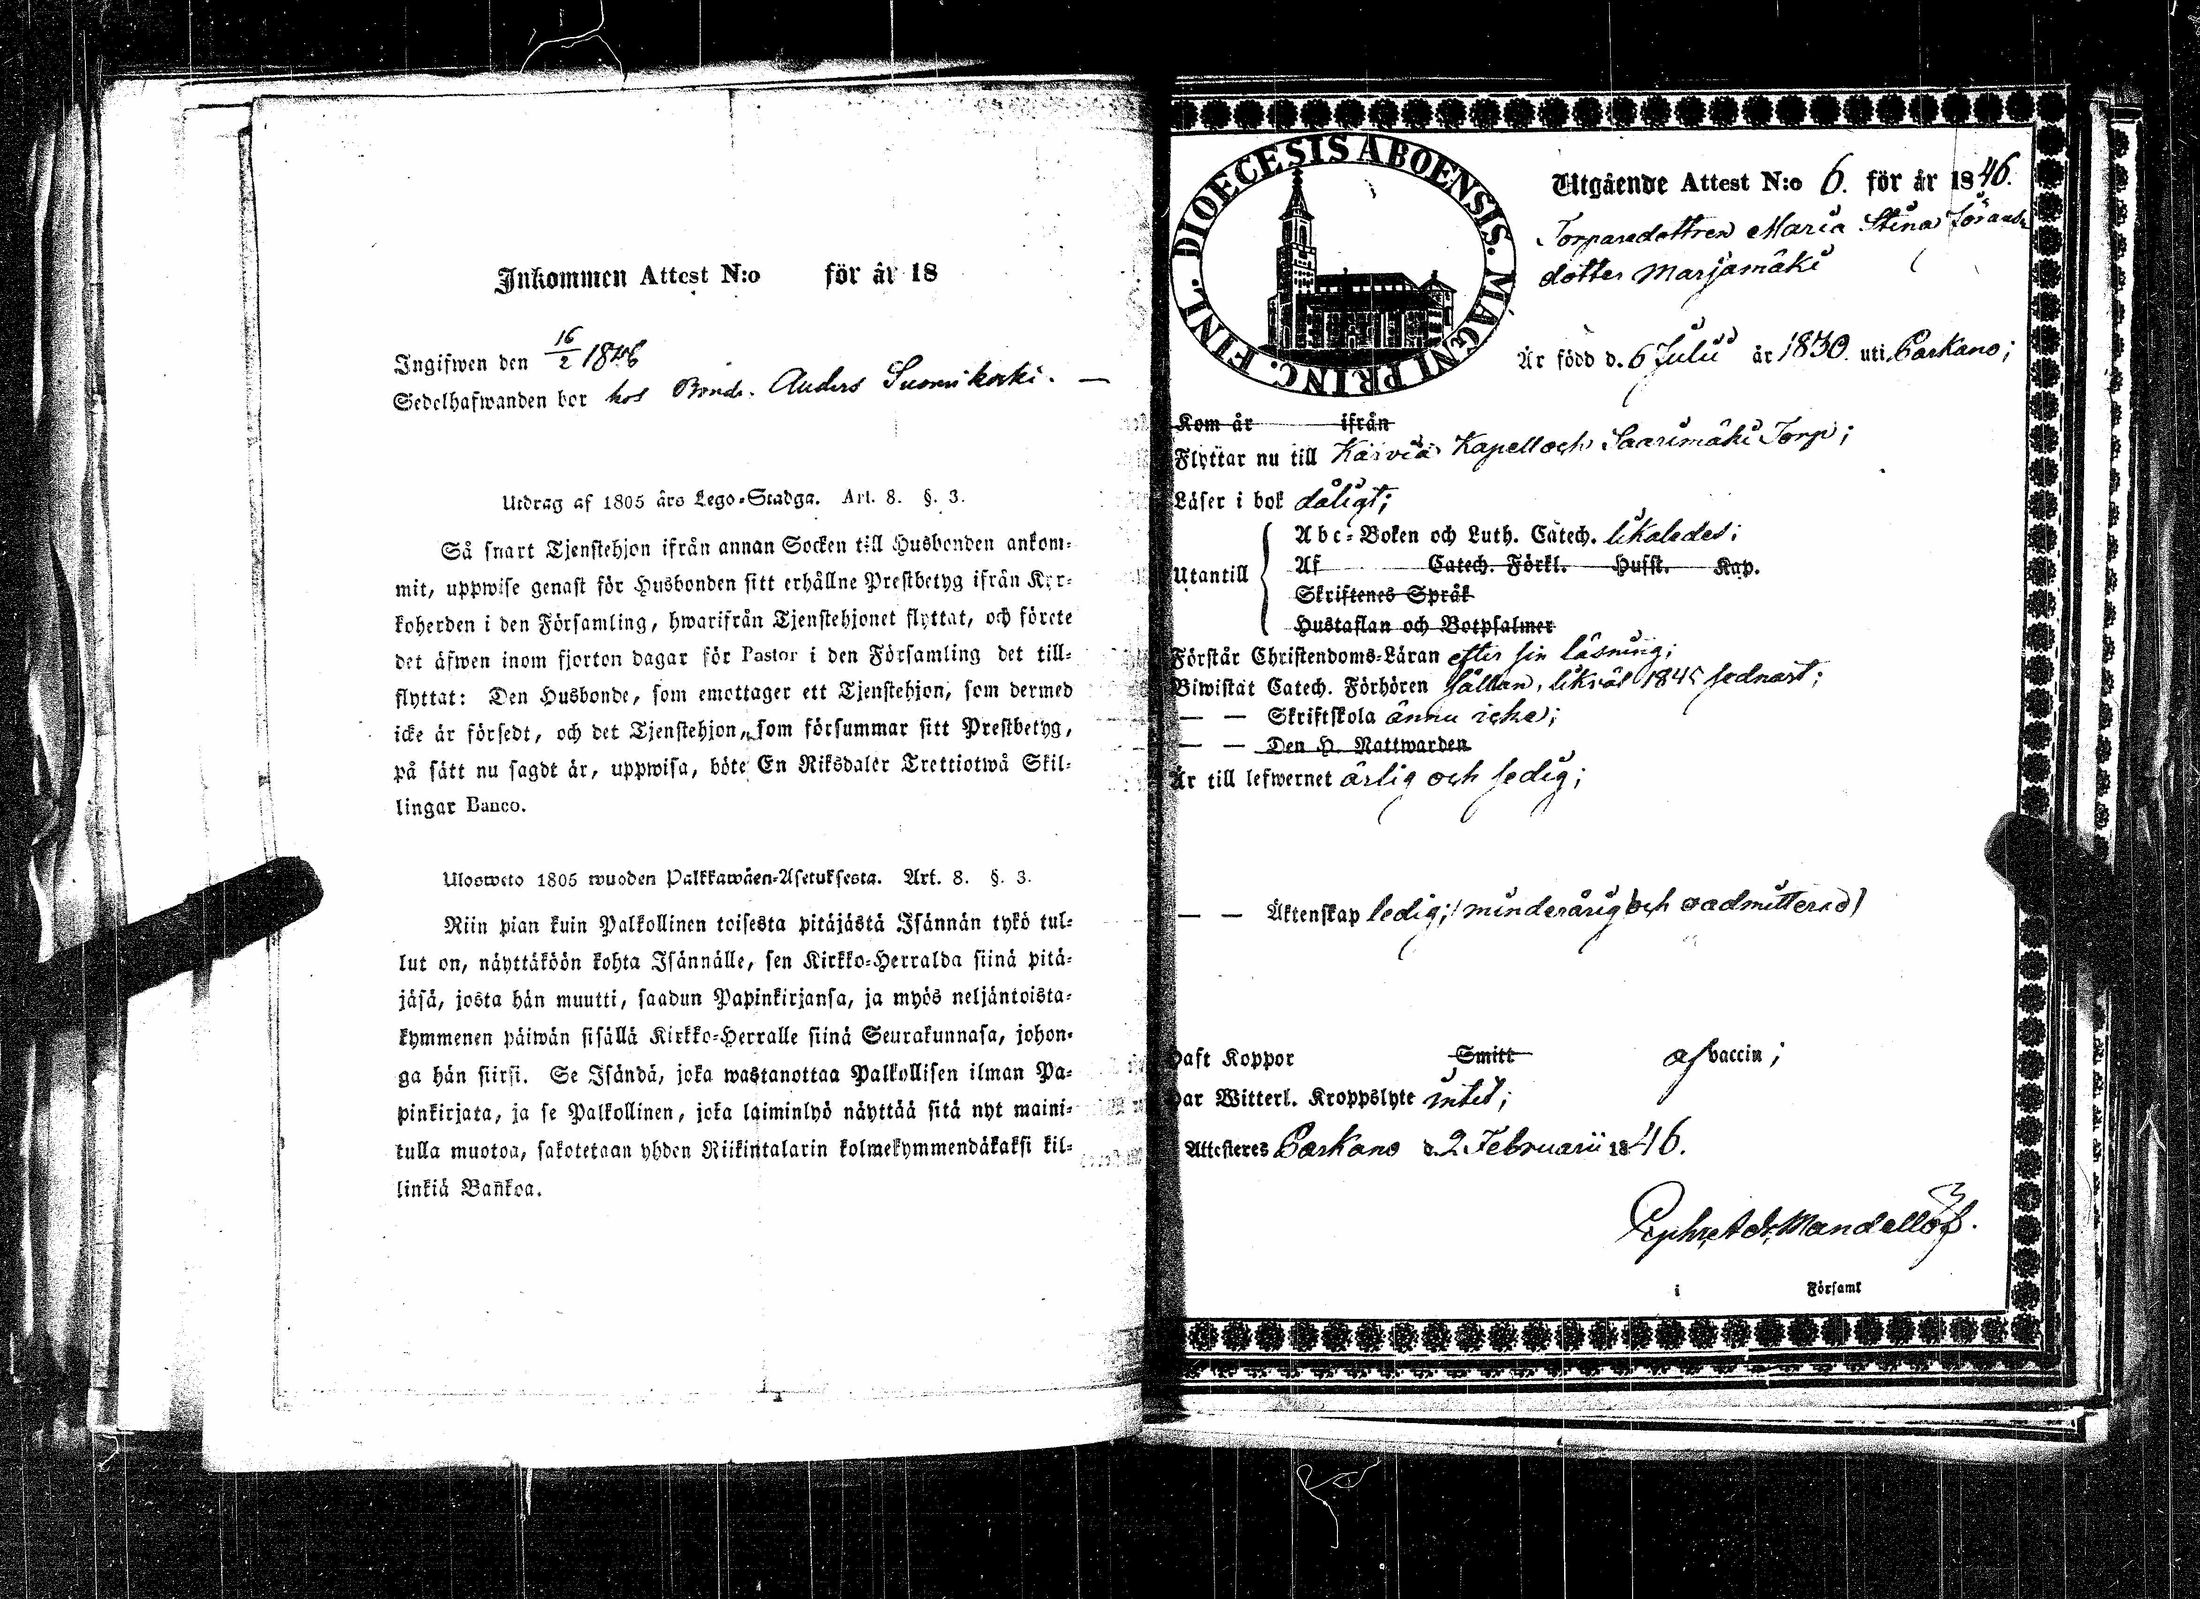 Inkommen Attest N:o för år 18
Ingifwen den 16/2 1846
Sedelhafwanden bor hos Bonde. Anders Suomikoski. —
Utdrag af 1805 års Lego-Stadga. Art. 8. §. 3.
Så snart Tjenstehjon ifrån annan Socken till Husbonden ankom-
mit, uppwise genast för Husbonden sitt erhållne Prestbetyg ifrån Kyr-
koherden i den Församling, hwarifrån Tjenstehjonet flyttat, och förete
det äfwen inom fjorton dagar för Pastor i den Församling det till-
flyttat: Den Husbonde, som emottager ett Tjenstehjon, som dermed
icke är försedt, och det Tjenstehjon, som försummar sitt Prestbetyg,
på sätt nu sagdt är, uppwisa, böte En Riksdaler Trettiotwå Skil-
lingar Banco.
Ulosweto 1805 wuoden Palkkawäen-Asetuksesta. Art. 8. §. 3.
Niin pian kuin Palkollinen toisesta pitäjästä Isännän tykö tul-
lut on, näyttäköön kohta Isännälle, sen Kirkko-Herralda siinä pitä-
jäsä, josta hän muutti, saadun Papinkirjansa, ja myös neljäntoista-
kymmenen päiwän sisällä Kirkko-Herralle siinä Seurakunnasa, johon-
ga hän siirsi. Se Isändä, joka wastanottaa Palkollisen ilman Pa-
pinkirjata, ja se Palkollinen, joka laiminlyö näyttää sitä nyt maini-
tulla muotoa, sakotetaan yhden Riikintalarin kolmekymmendäkaksi kil-
linkiä Bankoa.
DIOECESIS ABOENSIS. MAGNI PRINC. FINL.
Utgående Attest N:o 6. för år 1846.
Torparedottren Maria Stina Jöransdotter
dotter Marjamäki
Är född d. 6 Julii år 1830. uti Parkano;
Kom år ifrån
Flyttar nu till Karvia Kapell och Saarimäki Torp;
Läser i bok dåligt;
Utantill
Abc-Boken och Luth. Catech. likaledes;
Af Catech. Förkl. Husst. Kap.
Skriftenes Språk
Hustaflan och Botpsalmer
Förstår Christendoms-Läran efter sin läsning;
Biwistat Catech. Förhören sällan, likväl 1845 sednast;
— — Skriftskola ännu icke;
— — Den H. Nattwarden
Är till lefwernet ärlig och sedig;
— — Äktenskap ledig; (minderårig och oadmitterad)
Haft Koppor Smitt af vaccin;
Har Witterl. Kroppslyte intet;
Attesteres Parkano d. 2 Februarii 1846.
Mandellöf.
i Församl